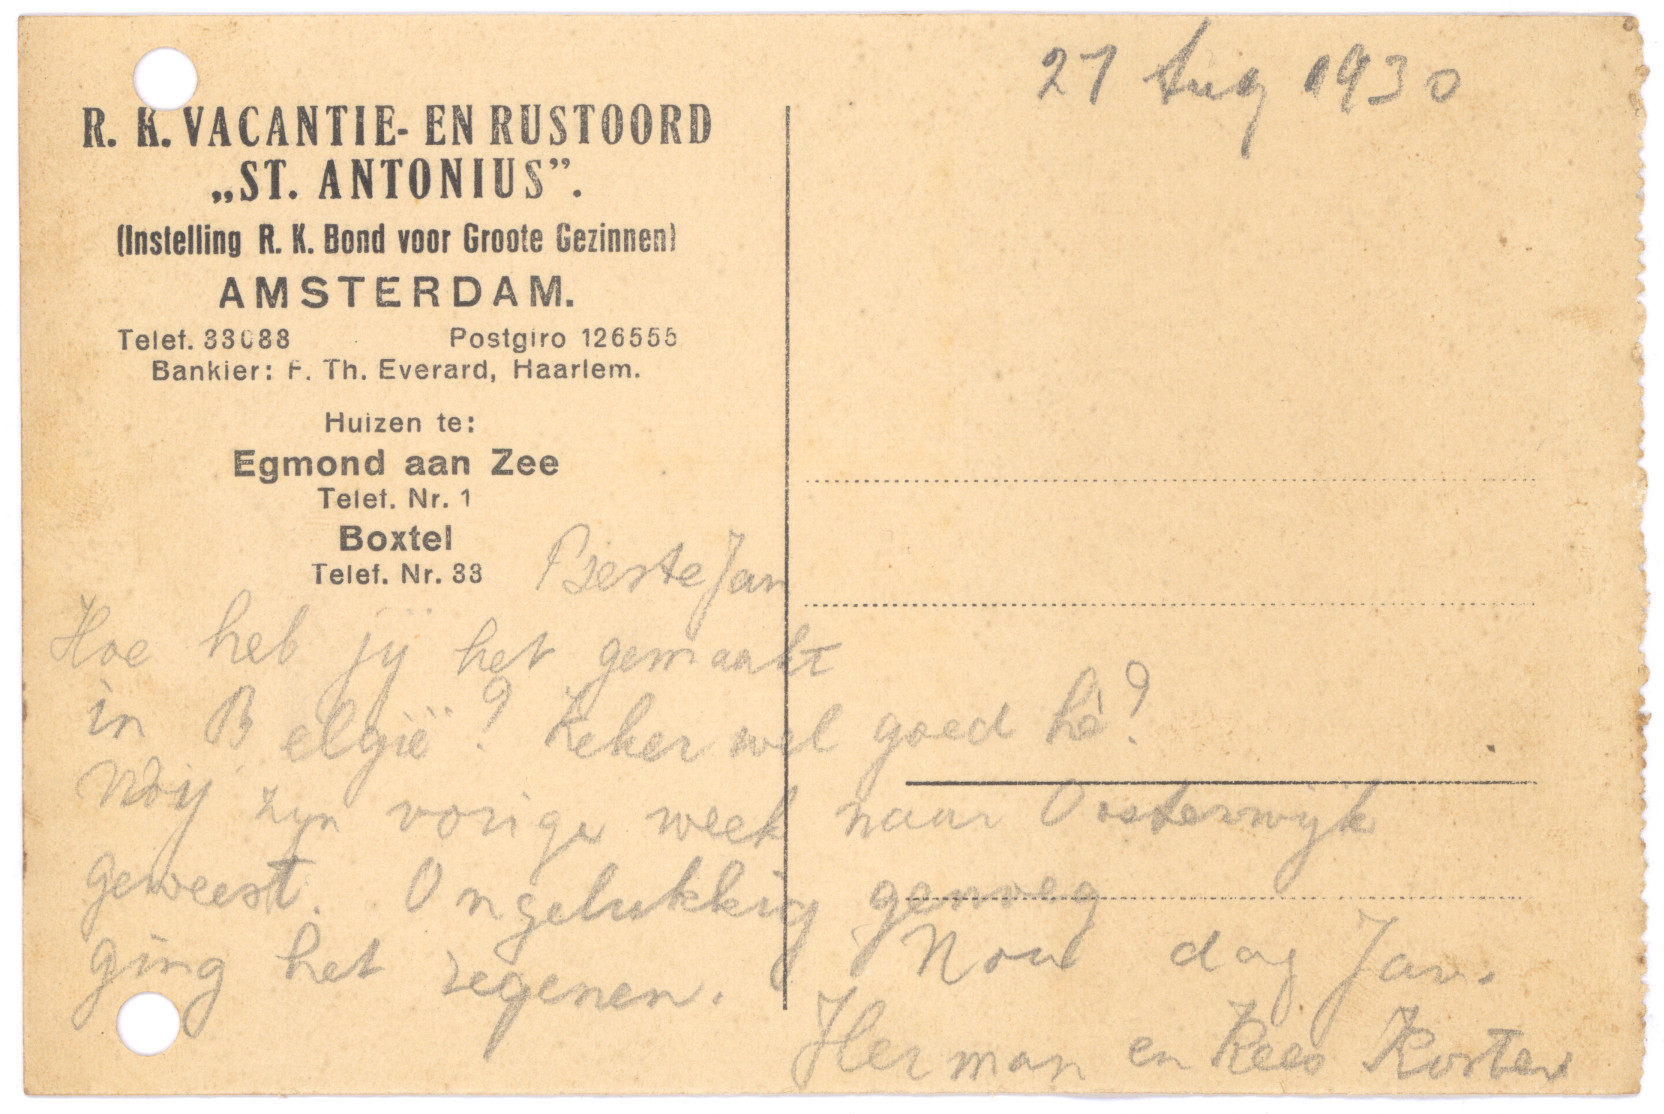 R. K. VACANTIE- EN RUSTOORD
„ST. ANTONIUS”.
(Instelling R. K. Bond voor Groote Gezinnen)
AMSTERDAM.
Telef. 33088 Postgiro 126555
Bankier: F. Th. Everard, Haarlem.
Huizen te:
Egmond aan Zee
Telef. Nr. 1
Boxtel
Telef. Nr. 33
27 Aug 1930
Beste Jan
Hoe heb jij het gemaakt
in België? Zeker wel goed hè?
Wij zijn vorige week naar Oosterwijk
geweest. Ongelukkig genoeg
ging het regenen. Nou dag Jan.
Herman en Kees Koster